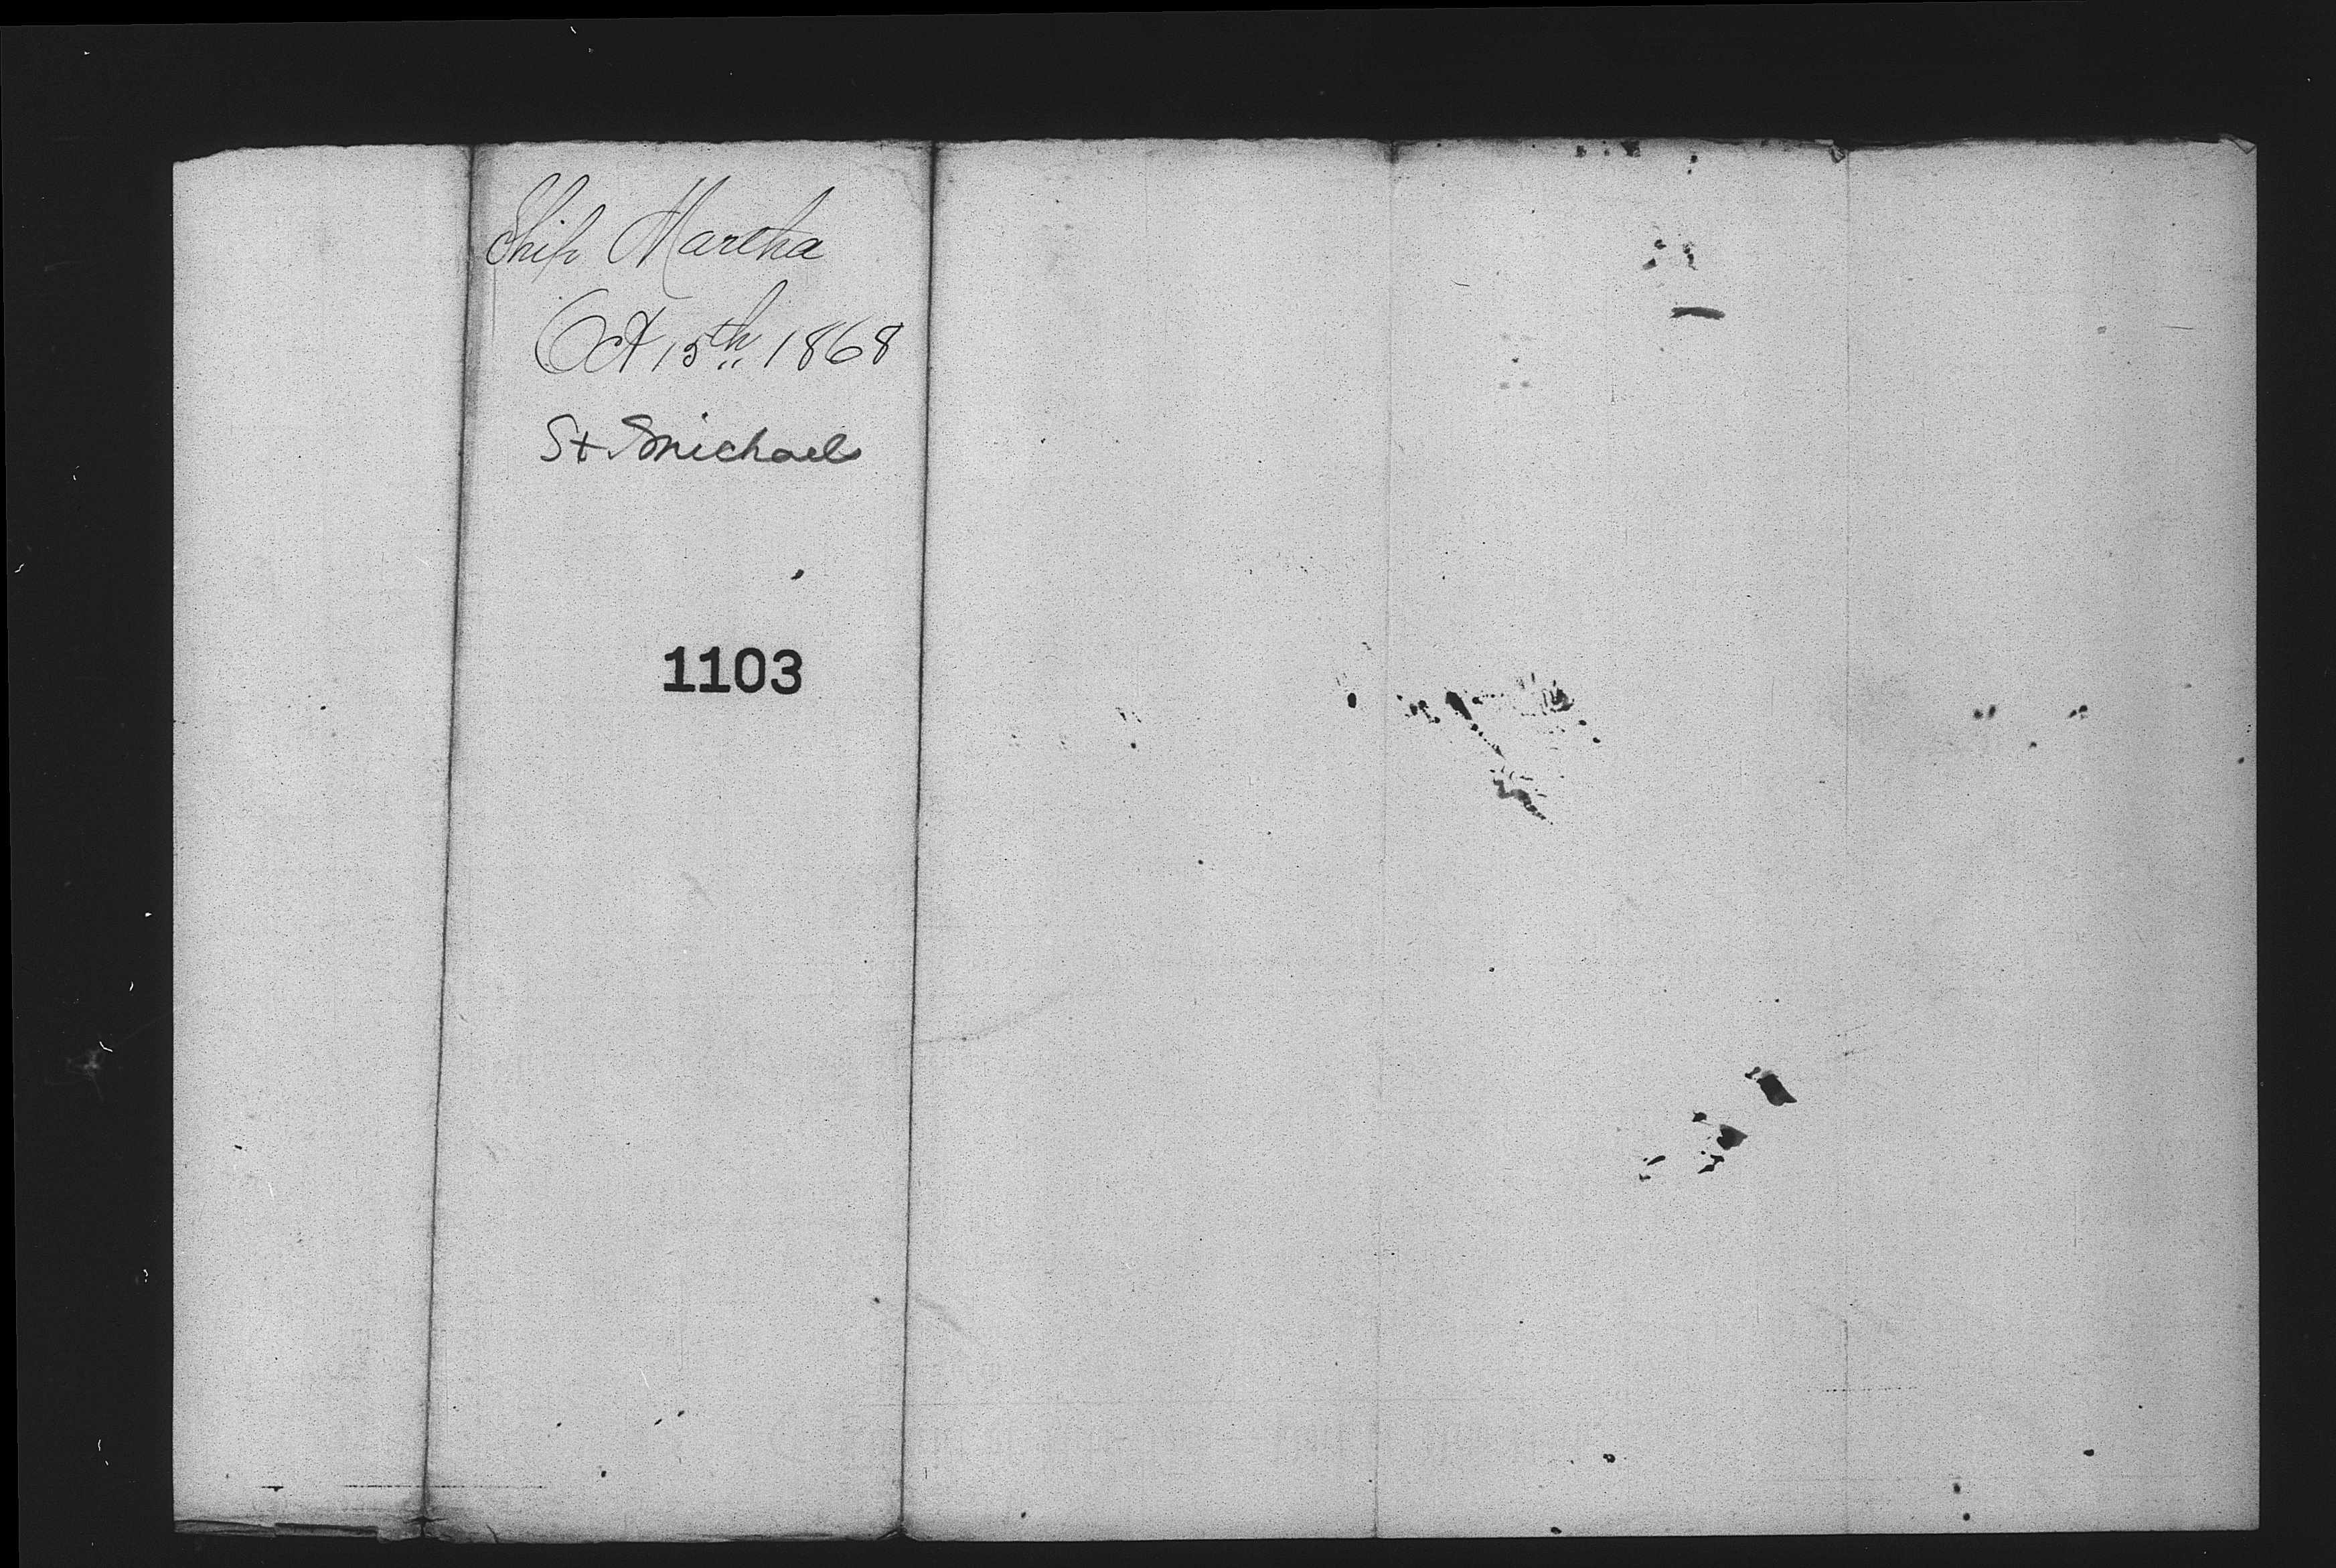 Ship Martha
Oct 15th 1868
St Michael
1103